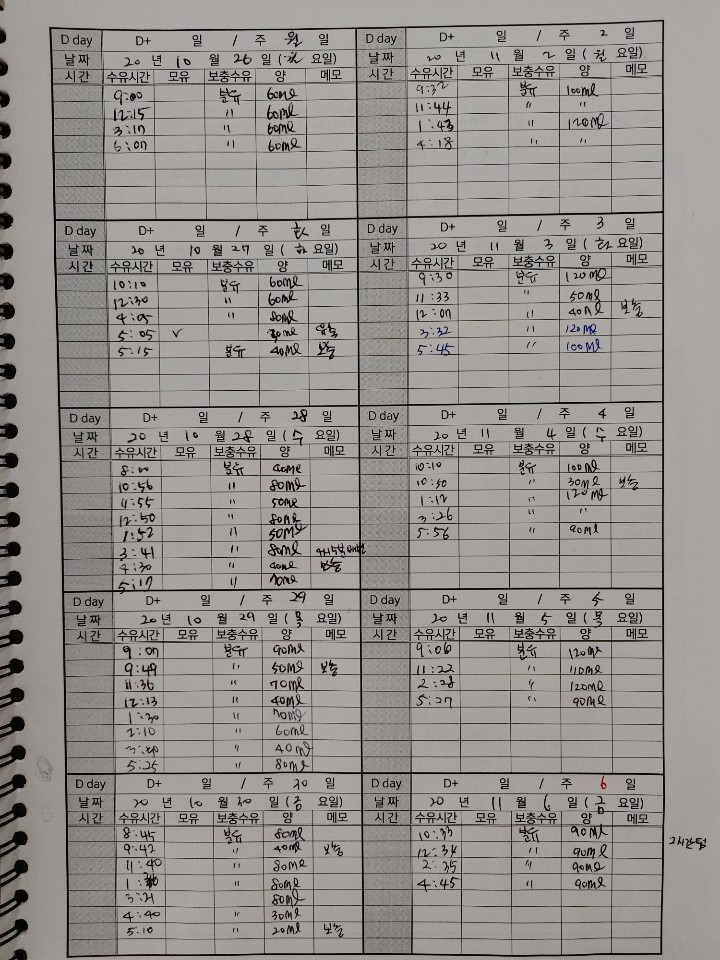 D day D+ 일 / 주 월 일
날짜 20 년 10 월 26 일 ( 요일)
시간 수유시간 모유 보충수유 양 메모
9:00 분유 60ml
12:15 " 60ml
3:17 " 60ml
6:07 " 60ml
D day D+ 일 / 주 화 일
날짜 20 년 10 월 27 일 ( 화 요일)
시간 수유시간 모유 보충수유 양 메모
10:10 분유 60ml
12:30 " 60ml
4:05 " 80ml
5:05 ✓ 30ml
5:15 분유 40ml 보충
D day D+ 일 / 주 28 일
날짜 20 년 10 월 28 일 ( 수 요일)
시간 수유시간 모유 보충수유 양 메모
8:00 분유
10:56 " 80ml
11:55 " 50ml
12:50 " 80ml
1:52 " 50ml
3:41 " 80ml
4:30 " 40ml 보충
5:17 " 70ml
D day D+ 일 / 주 29 일
날짜 20 년 10 월 29 일 ( 목 요일)
시간 수유시간 모유 보충수유 양 메모
9:07 분유 90ml
9:49 " 50ml 보충
11:36 " 70ml
12:13 " 40ml
1:30 " 70ml
2:10 " 60ml
3:20 " 40ml
5:25 " 80ml
D day D+ 일 / 주 30 일
날짜 20 년 10 월 30 일 ( 금 요일)
시간 수유시간 모유 보충수유 양 메모
8:45 분유 80ml
9:42 " 40ml 보충
11:40 " 80ml
" 80ml
3:21 80ml
4:40 " 30ml
5:10 " 20ml 보충
D day D+ 일 / 주 2 일
날짜 20 년 11 월 2 일 ( 월 요일)
시간 수유시간 모유 보충수유 양 메모
9:32 분유 100ml
11:44 " "
1:43 " 120ml
4:18 " "
D day D+ 일 / 주 3 일
날짜 20 년 11 월 3 일 ( 화 요일)
시간 수유시간 모유 보충수유 양 메모
9:30 분유 120ml
11:33 " 50ml
12:07 " 40ml 보충
3:32 " 120ml
5:45 " 100ml
D day D+ 일 / 주 4 일
날짜 20 년 11 월 4 일 ( 수 요일)
시간 수유시간 모유 보충수유 양 메모
10:10 분유 100ml
10:50 30ml 보충
1:12 " 120ml
3:26 " "
5:56 " 90ml
D day D+ 일 / 주 5 일
날짜 20 년 11 월 5 일 ( 목 요일)
시간 수유시간 모유 보충수유 양 메모
9:06 분유 120ml
11:22 " 110ml
2:28 " 120ml
5:27 " 90ml
D day D+ 일 / 주 6 일
날짜 20 년 11 월 6 일 ( 금 요일)
시간 수유시간 모유 보충수유 양 메모
10:33 분유 90ml
12:34 " 90ml
2:35 " 90ml
4:45 " 90ml